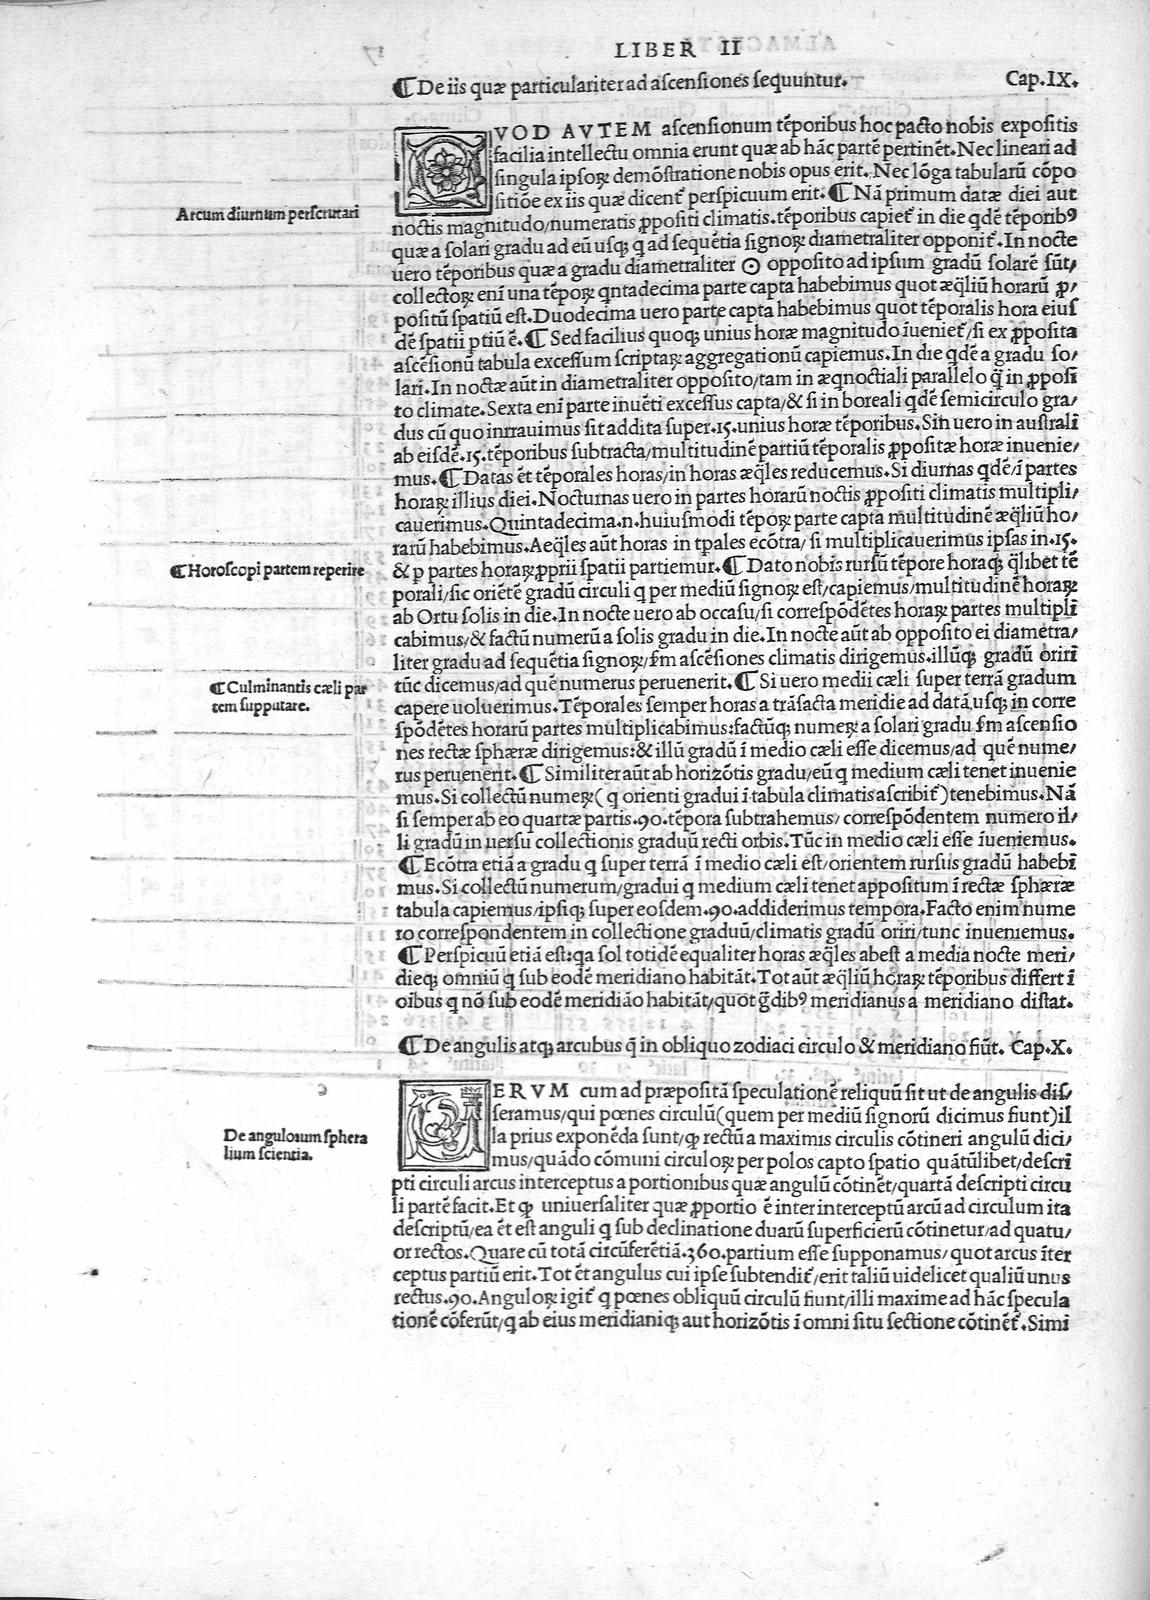 LIBER II
¶ De iis quæ particulariter ad ascensiones sequuntur. Cap.IX.
QVOD AVTEM ascensionum tẽporibus hoc pacto nobis expositis
facilia intellectu omnia erunt quæ ab hãc partẽ pertinẽt. Nec lineari ad
singula ipsoꝝ demõstratione nobis opus erit. Nec lõga tabularũ cõpo
sitiõe ex iis quæ dicent᷑ perspicuum erit. ¶ Nã primum datæ diei aut
Arcum diurnum perscrutari
noctis magnitudo/numeratis ꝓpositi climatis. tẽporibus capiet᷑ in die qdẽ tẽporibꝰ
quæ a solari gradu ad eũ usqꝫ q ad sequẽtia signoꝝ diametraliter opponit᷑. In nocte
uero tẽporibus quæ a gradu diametraliter ☉ opposito ad ipsum gradũ solarẽ sũt/
collectoꝝ enĩ una tẽpoꝝ qntadecima parte capta habebimus quot æq̃liũ horarũ ꝓ/
positũ spatiũ est. Duodecima uero parte capta habebimus quot tẽporalis hora eius
dẽ spatii ptiũ ẽ. ¶ Sed facilius quoqꝫ unius horæ magnitudo ĩueniet᷑/si ex ꝓposita
ascẽsionũ tabula excessum scriptaꝝ aggregationũ capiemus. In die qdẽ a gradu so/
lari. In noctæ aũt in diametraliter opposito/tam in æqnoctiali parallelo q̃ in ꝓposi
to climate. Sexta enĩ parte inuẽti excessus capta/& si in boreali qdẽ semicirculo gra/
dus cũ quo inrrauimus sit addita super .15. unius horæ tẽporibus. Sin uero in australi
ab eisdẽ .15. tẽporibus subtracta/multitudinẽ partiũ tẽporalis ꝓpositæ horæ inuenie/
mus. ¶ Datas ẽt tẽporales horas/in horas æq̃les reducemus. Si diurnas qdẽ/ĩ partes
horaꝝ illius diei. Nocturnas uero in partes horarũ noctis ꝓpositi climatis multipli/
cauerimus. Quintadecima .n. huiusmodi tẽpoꝝ parte capta multitudinẽ æq̃liũ ho/
rarũ habebimus. Aeq̃les aũt horas in tpales ecõtra/ si multiplicauerimus ipsas in .15.
¶ Horoscopi partem reperire
& p partes horaꝝ ꝓprii spatii partiemur. ¶ Dato nobis rursũ tẽpore horaqꝫ q̃libet tẽ
porali/sic oriẽtẽ gradũ circuli q per mediũ signoꝝ est/capiemus/multitudinẽ horaꝝ
ab Ortu solis in die. In nocte uero ab occasu/si correspõdẽtes horaꝝ partes multipli
cabimus/& factũ numerũ a solis gradu in die. In nocte aũt ab opposito ei diametra/
liter gradu ad sequẽtia signoꝝ/ſm ascẽsiones climatis dirigemus. illũqꝫ gradũ oriri
¶ Culminantis cæli par
tem supputare.
tũc dicemus/ad quẽ numerus peruenerit. ¶ Si uero medii cæli super terrã gradum
capere uoluerimus. Tẽporales semper horas a trãsacta meridie ad datã usqꝫ in corre
spõdẽtes horarũ partes multiplicabimus: factũqꝫ numeꝝ a solari gradu ſm ascensio
nes rectæ sphæræ dirigemus: & illũ gradũ ĩ medio cæli esse dicemus/ad quẽ nume/
rus peruenerit. ¶ Similiter aũt ab horizõtis gradu/eũ q medium cæli tenet inuenie
mus. Si collectũ numeꝝ( q orienti gradui ĩ tabula climatis ascribit᷑) tenebimus. Nã
si semper ab eo quartæ partis .90. tẽpora subtrahemus/ correspõdentem numero il/
li gradũ in uersu collectionis graduũ recti orbis. Tũc in medio cæli esse ĩueniemus.
¶ Ecõtra etiã a gradu q super terrã ĩ medio cæli est/orientem rursus gradũ habebi
mus. Si collectũ numerum/gradui q medium cæli tenet appositum ĩ rectæ sphæræ
tabula capiemus/ipsiqꝫ super eosdem .90. addiderimus tempora. Facto enim nume
ro correspondentem in collectione graduũ/climatis gradũ oriri/tunc inueniemus.
¶ Perspicuũ etiã est: qa sol totidẽ equaliter horas æq̃les abest a media nocte meri/
dieqꝫ omniũ q sub eodẽ meridiano habitãt. Tot aũt æq̃liũ horaꝝ tẽporibus differt ĩ
oibus q nõ sub eodẽ meridião habitãt/quot g̃dibꝰ meridianus a meridiano distat.
¶ De angulis atqꝫ arcubus q̃ in obliquo zodiaci circulo & meridiano fiũt. Cap.X.
VERVM cum ad præpositã speculationẽ reliquũ sit ut de angulis dis/
seramus/qui pœnes circulũ(quem per mediũ signorũ dicimus fiunt) il
De angulorum sphera
lium scientia.
la prius exponẽda sunt/ qꝫ rectũ a maximis circulis cõtineri angulũ dici/
mus/quãdo cõmuni circuloꝝ per polos capto spatio quãtũlibet/descri
pti circuli arcus interceptus a portionibus quæ angulũ cõtinẽt/quartã descripti circu
li partẽ facit. Et qꝫ uniuersaliter quæ ꝓportio ẽ inter interceptũ arcũ ad circulum ita
descriptũ/ea ẽt est anguli q sub declinatione duarũ superficierũ cõtinetur/ad quatu/
or rectos. Quare cũ totã circũferẽtiã .360. partium esse supponamus/ quot arcus ĩter
ceptus partiũ erit. Tot ẽt angulus cui ipse subtendit᷑/erit taliũ uidelicet qualiũ unus
rectus .90. Anguloꝝ igit᷑ q pœnes obliquũ circulũ fiunt/illi maxime ad hãc specula
tionẽ cõferũt/q ab eius meridianiqꝫ aut horizõtis ĩ omni situ sectione cõtinẽt᷑. Simi